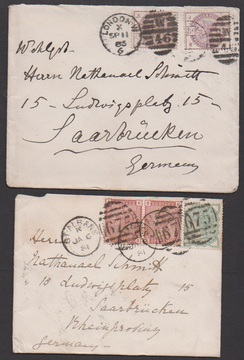 LONDON W
X
SP 11
85
6
W
46
Wohlgb.
Herrn Nathanael Schmitt
15 - Ludwigsplatz. 15 -
Saarbrücken
Germany
ST. ALBANS
JA 6
81
675
Herrn
Nathanael Schmitt
15 Ludwigsplatz 15
Saarbrücken
Rheinprovinz
Germany -